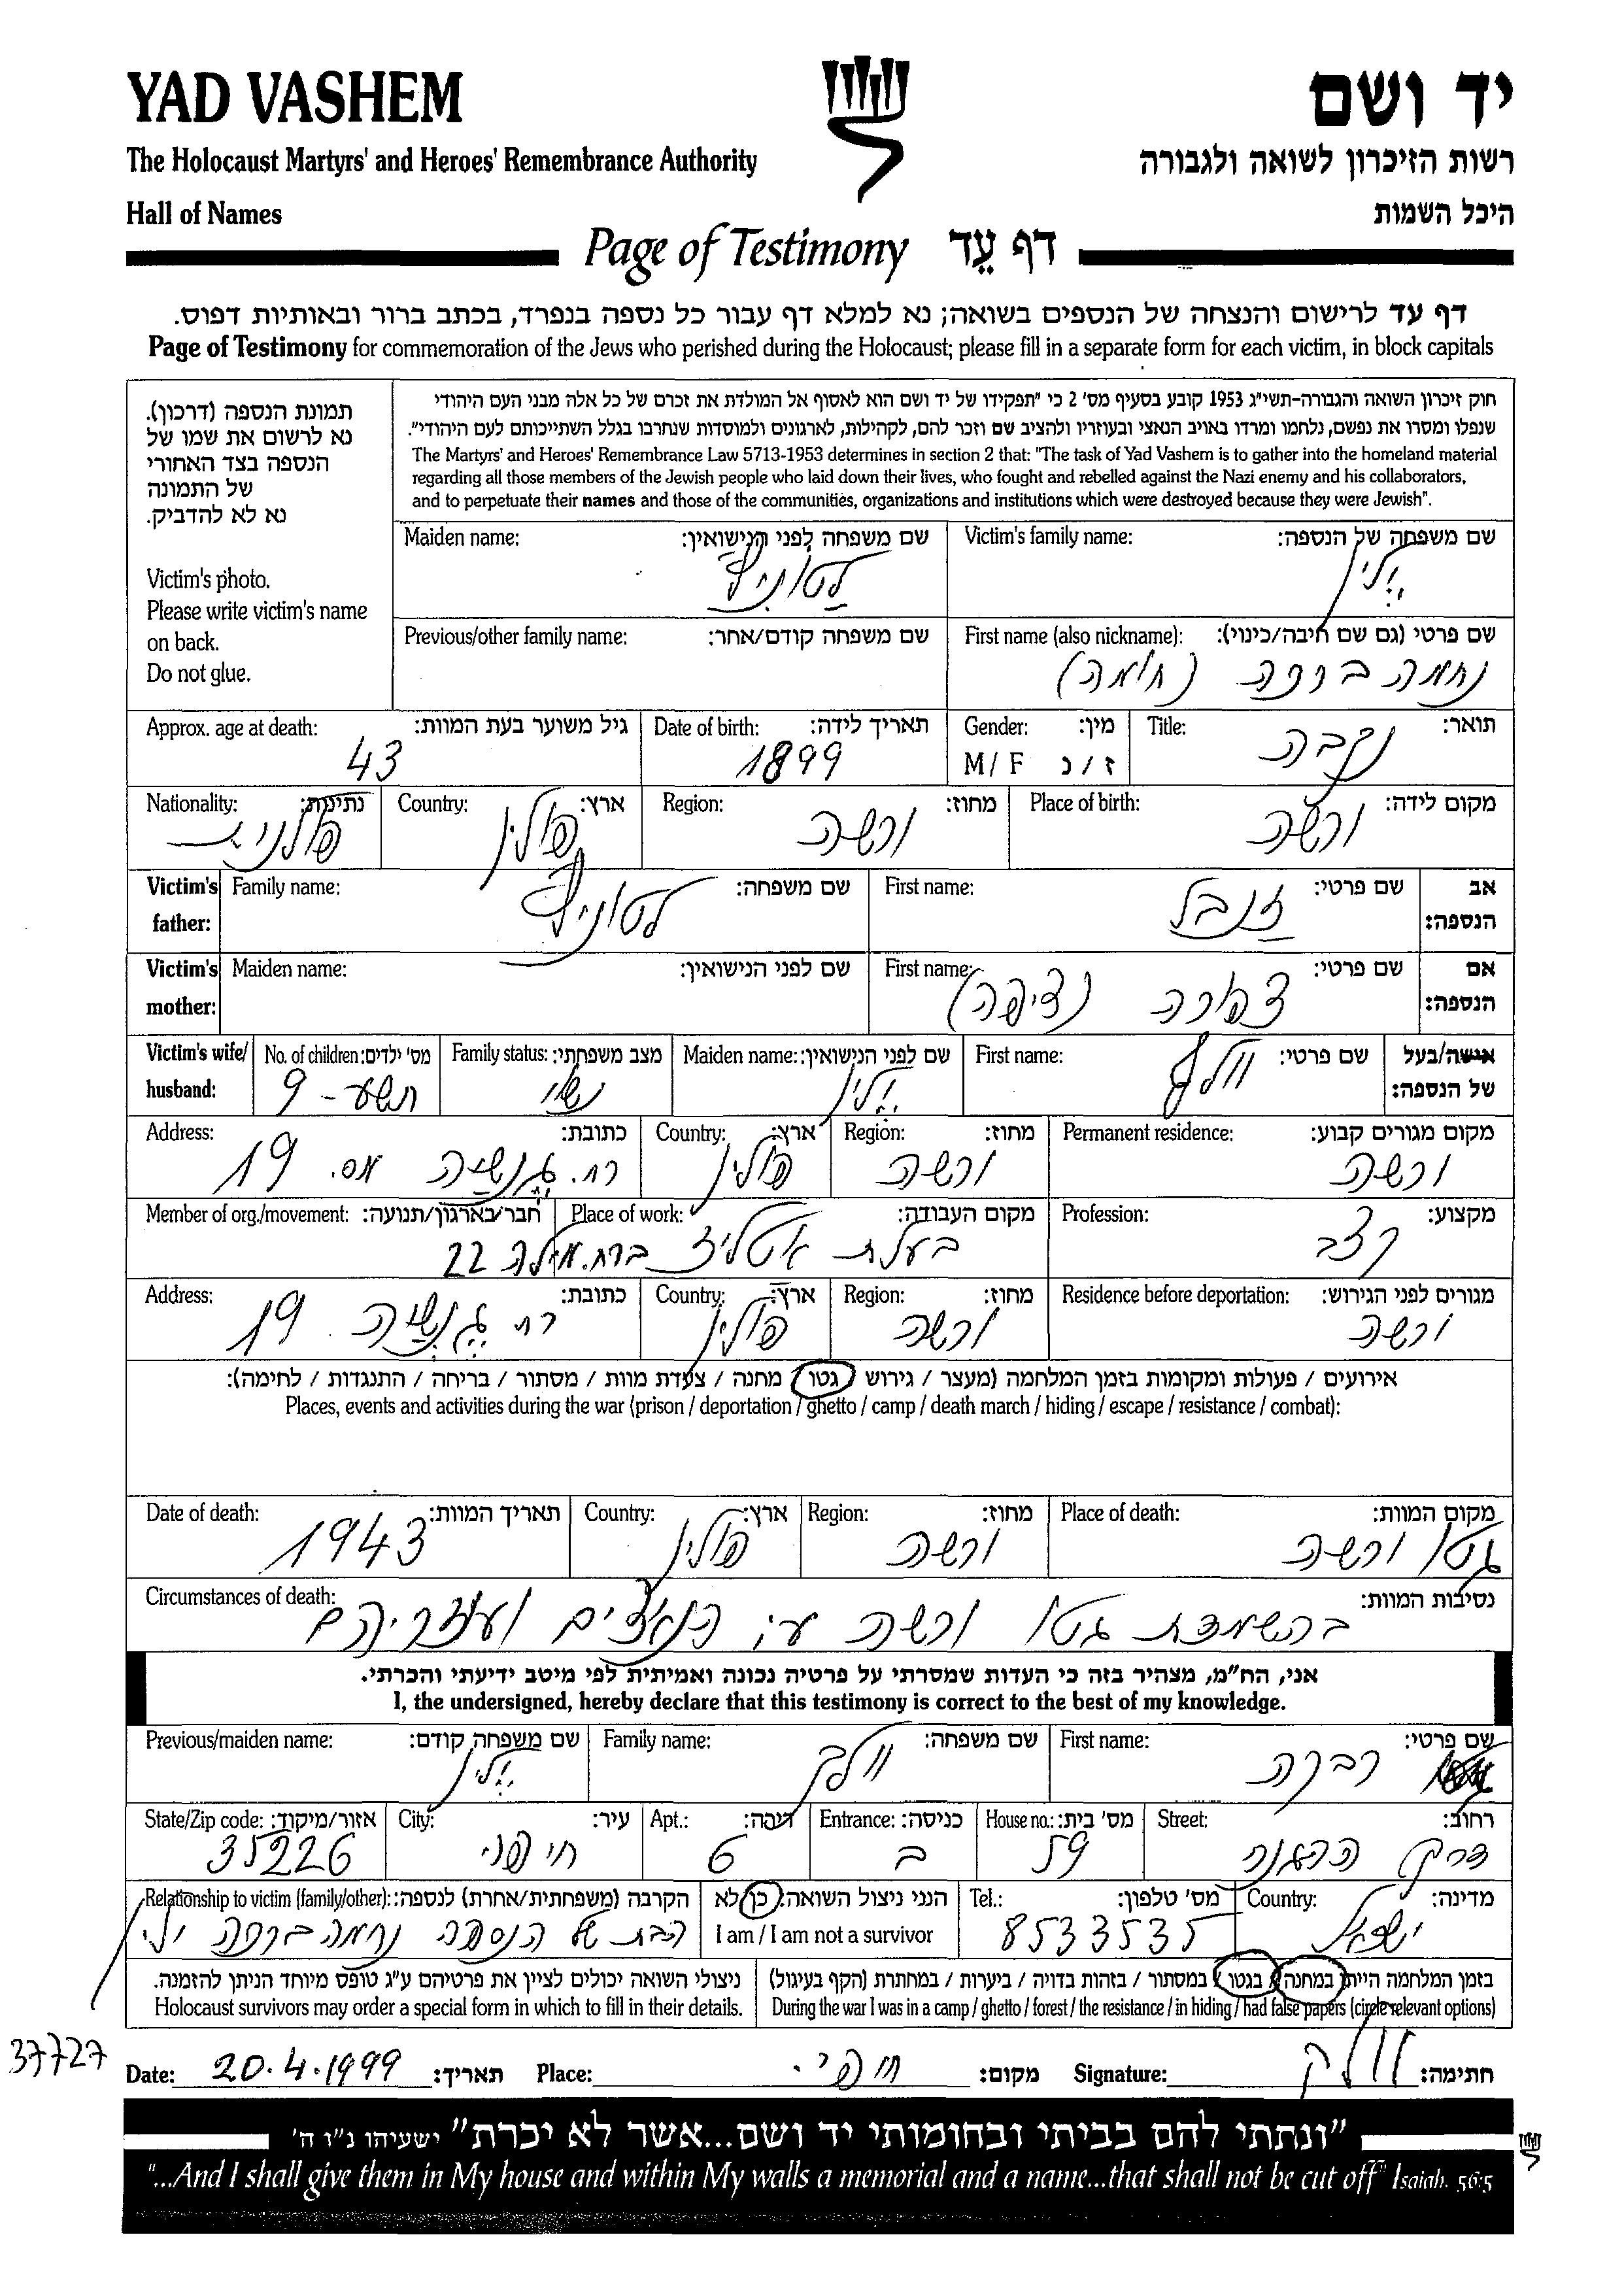 YAD VASHEM
יד ושם
The Holocaust Martyrs' and Heroes' Remembrance Authority
רשות הזיכרון לשואה ולגבורה
Hall of Names
היכל השמות
Page of Testimony דף עֵד
דף עד לרישום והנצחה של הנספים בשואה; נא למלא דף עבור כל נספה בנפרד, בכתב ברור ובאותיות דפוס.
Page of Testimony for commemoration of the Jews who perished during the Holocaust; please fill in a separate form for each victim, in block capitals
תמונת הנספה (דרכון).
נא לרשום את שמו של
הנספה בצד האחורי
של התמונה
נא לא להדביק.
Victim's photo.
Please write victim's name
on back.
Do not glue.
חוק זיכרון השואה והגבורה-תשי"ג 1953 קובע בסעיף מס' 2 כי "תפקידו של יד ושם הוא לאסוף אל המולדת את זכרם של כל אלה מבני העם היהודי
שנפלו ומסרו את נפשם, נלחמו ומרדו באויב הנאצי ובעוזריו ולהציב שם וזכר להם, לקהילות, לארגונים ולמוסדות שנחרבו בגלל השתייכותם לעם היהודי".
The Martyrs' and Heroes' Remembrance Law 5713-1953 determines in section 2 that: "The task of Yad Vashem is to gather into the homeland material
regarding all those members of the Jewish people who laid down their lives, who fought and rebelled against the Nazi enemy and his collaborators,
and to perpetuate their names and those of the communities, organizations and institutions which were destroyed because they were Jewish".
Victim's family name: שם משפחה של הנספה:
ילין
Maiden name: שם משפחה לפני הנישואין:
First name (also nickname): שם פרטי (גם שם חיבה/כינוי):
נחמה ברכה (חומה)
Previous/other family name: שם משפחה קודם/אחר:
Title: תואר:
נקבה
Gender: מין:
M / F ז / נ
Date of birth: תאריך לידה:
1899
Approx. age at death: גיל משוער בעת המוות:
43
Place of birth: מקום לידה:
ורשה
Region: מחוז:
ורשה
Country: ארץ:
פולין
Nationality: נתינות:
פולנית
Victim's father: אב הנספה:
First name: שם פרטי:
זנבל
Family name: שם משפחה:
Victim's mother: אם הנספה:
First name: שם פרטי:
צפורה (ציפה)
Maiden name: שם לפני הנישואין:
Victim's wife/ husband: אישה/בעל של הנספה:
First name: שם פרטי:
וולף
Maiden name: שם לפני הנישואין:
ילין
Family status: מצב משפחתי:
נשוי
No. of children: מס' ילדים:
תשע - 9
Permanent residence: מקום מגורים קבוע:
ורשה
Region: מחוז:
ורשה
Country: ארץ:
פולין
Address: כתובת:
רח. גנשה מס. 19
Profession: מקצוע:
קצב
Place of work: מקום העבודה:
Member of org./movement: חבר/בארגון/תנועה:
בעלת אטליז ברח. מילה 22
Residence before deportation: מגורים לפני הגירוש:
ורשה
Region: מחוז:
ורשה
Country: ארץ:
פולין
Address: כתובת:
רח גנשה 19
אירועים / פעולות ומקומות בזמן המלחמה (מעצר / גירוש / גטו / מחנה / צעדת מוות / מסתור / בריחה / התנגדות / לחימה):
Places, events and activities during the war (prison / deportation / ghetto / camp / death march / hiding / escape / resistance / combat):
Place of death: מקום המוות:
גטו ורשה
Region: מחוז:
ורשה
Country: ארץ:
פולין
Date of death: תאריך המוות:
1943
Circumstances of death: נסיבות המוות:
בהשמדת גטו ורשה ע"י הנאצים ועוזריהם
אני, הח"מ, מצהיר בזה כי העדות שמסרתי על פרטיה נכונה ואמיתית לפי מיטב ידיעתי והכרתי.
I, the undersigned, hereby declare that this testimony is correct to the best of my knowledge.
First name: שם פרטי:
רבקה
Family name: שם משפחה:
וולך
Previous/maiden name: שם משפחה קודם:
ילין
Street: רחוב:
דרך ההגנה
House no.: מס' בית:
59
Entrance: כניסה:
ב
Apt.: דירה:
6
City: עיר:
חיפה
State/Zip code: אזור/מיקוד:
35226
Country: מדינה:
ישראל
Tel.: מס' טלפון:
8533535
הנני ניצול השואה: כן/לא
I am / I am not a survivor
Relationship to victim (family/other): הקרבה (משפחתית/אחרת) לנספה:
הבת של הנספה נחמה ברכה ילין
בזמן המלחמה הייתי במחנה / בגטו / במסתור / בזהות בדויה / ביערות / במחתרת (הקף בעיגול)
During the war I was in a camp / ghetto / forest / the resistance / in hiding / had false papers (circle relevant options)
ניצולי השואה יכולים לציין את פרטיהם ע"ג טופס מיוחד הניתן להזמנה.
Holocaust survivors may order a special form in which to fill in their details.
37727
Date: 20.4.1999 תאריך:
Place: מקום:
Signature: חתימה:
"ונתתי להם בביתי ובחומותי יד ושם...אשר לא יכרת" ישעיהו נ"ו ה'
"...And I shall give them in My house and within My walls a memorial and a name...that shall not be cut off" Isaiah. 56:5